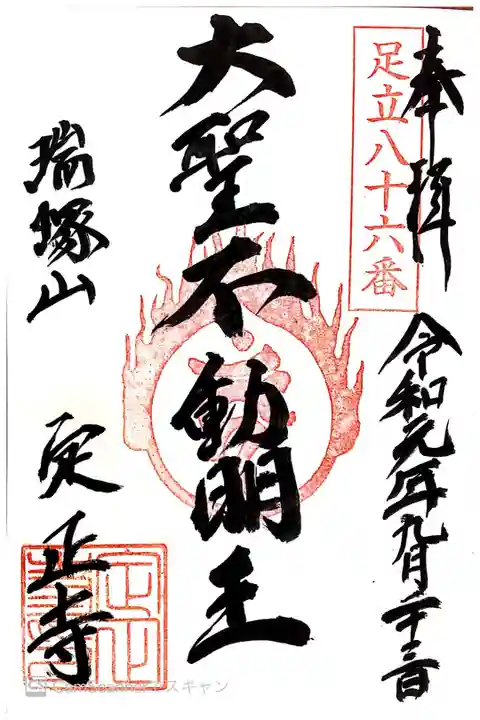 奉拝
令和元年九月二十三日
足立八十六番
大聖不動明王
瑞塚山
定正寺
スキャン